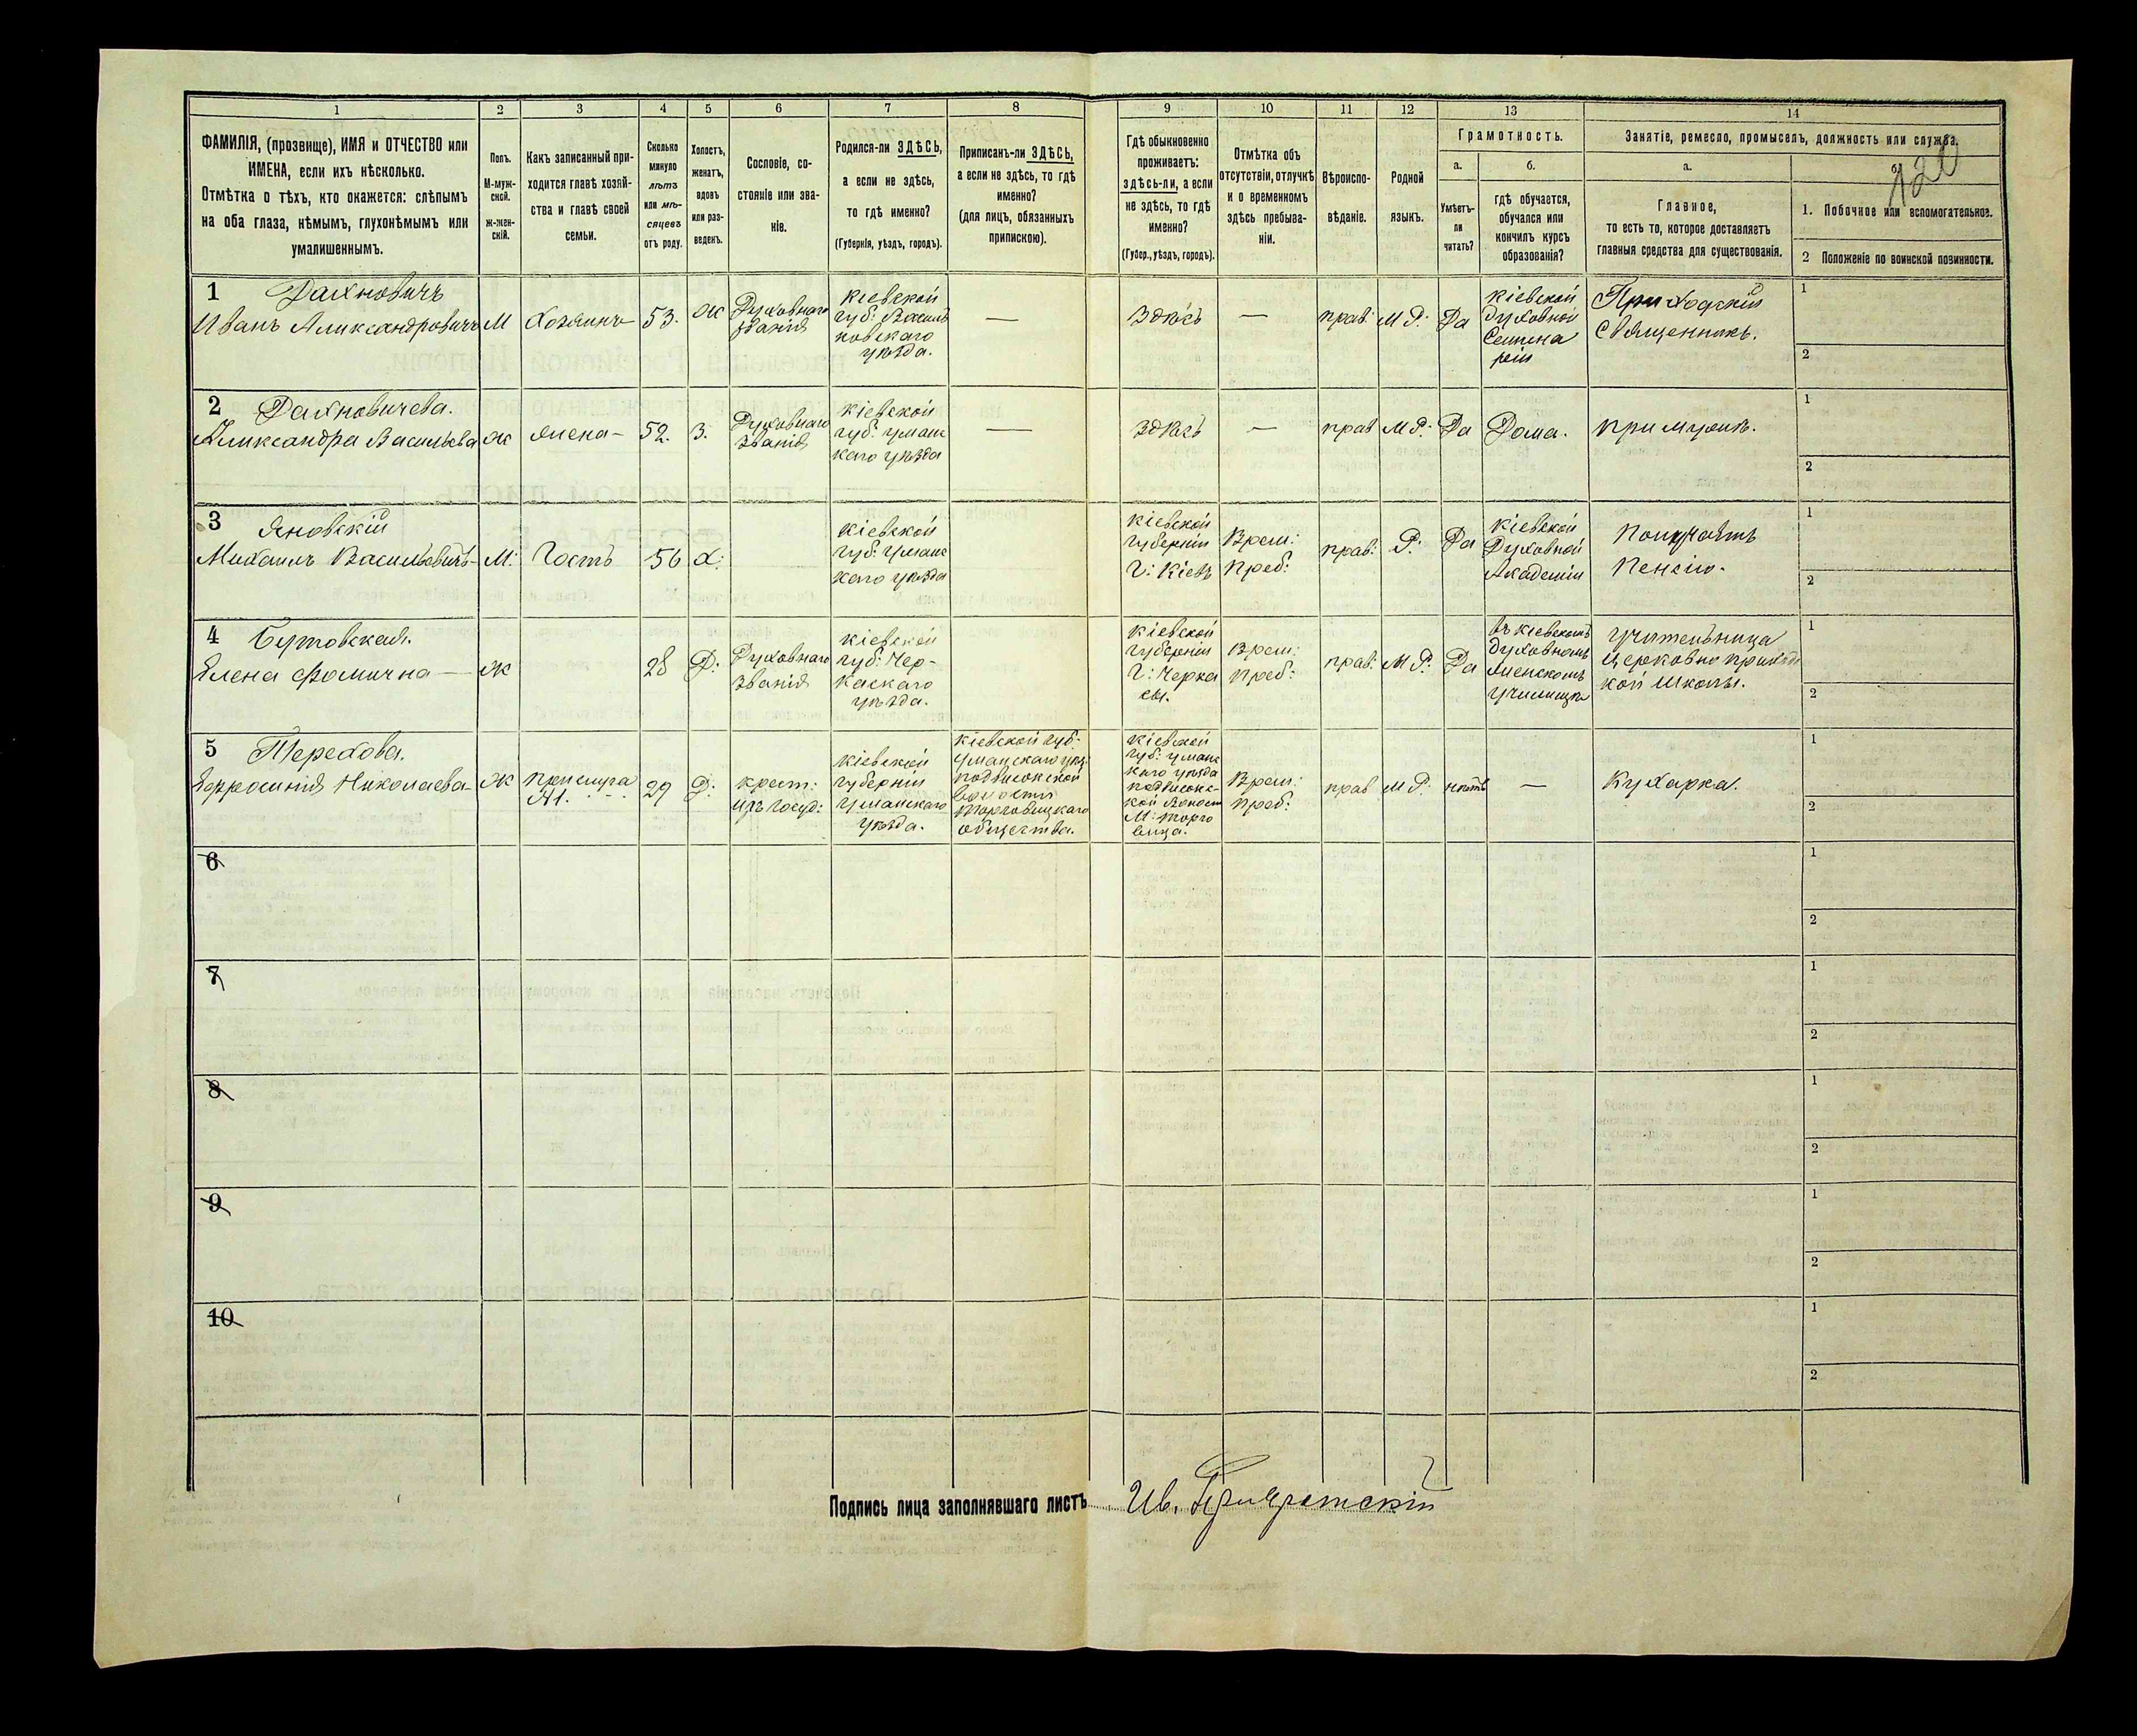 1 2 3 4 5 6 7 8 9 10 11 12 13 14
ФАМИЛІЯ, (прозвище), ИМЯ и ОТЧЕСТВО или
ИМЕНА, если ихъ нѣсколько.
Отмѣтка о тѣхъ, кто окажется: слѣпымъ
на оба глаза, нѣмымъ, глухонѣмымъ или
умалишеннымъ.
Полъ.
М-муж-
ской.
ж-жен-
скій.
Какъ записанный при-
ходится главѣ хозяй-
ства и главѣ своей
семьи.
Сколько
минуло
лѣтъ
или мѣ-
сяцевъ
отъ роду.
Холостъ,
женатъ,
вдовъ
или раз-
веденъ.
Сословіе, со-
стояніе или зва-
ніе.
Родился-ли ЗДѢСЬ,
а если не здѣсь,
то гдѣ именно?
(Губернія, уѣздъ, городъ).
Приписанъ-ли ЗДѢСЬ,
а если не здѣсь, то гдѣ
именно?
(для лицъ, обязанныхъ
припискою).
Гдѣ обыкновенно
проживаетъ:
здѣсь-ли, а если
не здѣсь, то гдѣ
именно?
(Губер., уѣздъ, городъ).
Отмѣтка объ
отсутствіи, отлучкѣ
и о временномъ
здѣсь пребыва-
ніи.
Вѣроиспо-
вѣданіе.
Родной
языкъ.
Грамотность.
а.
Умѣетъ-
ли
читать?
б.
гдѣ обучается,
обучался или
кончилъ курсъ
образованія?
Занятіе, ремесло, промыселъ, должность или служба.
а.
Главное,
то есть то, которое доставляетъ
главныя средства для существованія.
б.
120
1. Побочное или вспомогательное.
2 Положеніе по воинской повинности.
1 Дахновичъ
Иванъ Александровичъ
М
Хозяинъ
53.
ж
Духовнаго
званія
Кіевской
губ: Василь
ковскаго
уѣзда.
—
Здѣсь
—
прав:
М Р:
Да
Кіевской
Духовной
Семина
ріи
Приходскій
Священникъ.
1
2
2 Дахновичева.
Александра Васильева
ж
жена
52.
З.
Духовнаго
званія
Кіевской
губ: Уманс
каго уѣзда
—
Здѣсь
—
прав
М Р:
Да
Дома.
при мужѣ.
1
2
3 Яновскій
Михаилъ Васильевичъ
М:
Гость
56
Х:
Кіевской
губ: Уманс
каго уѣзда
Кіевской
губерніи
Г: Кіевъ
Врем:
Преб:
прав:
Р:
Да
Кіевской
Духовной
Академіи
Получаетъ
Пенсію.
1
2
4 Бутовская.
Елена Фомична
ж
28
Д:
Духовнаго
званія
Кіевской
губ: Чер-
каскаго
уѣзда.
Кіевской
губерніи
Г: Черка
сы.
Врем:
преб:
прав:
М Р:
Да
въ Кіевскомъ
Духовномъ
женскомъ
училищѣ
Учительница
Церковно приход
кой Школы.
1
2
5 Терехова.
Евфросинія Николаева
Ж
прислуга
29
Д:
крест:
изъ госуд:
Кіевской
губерніи
Уманскаго
уѣзда.
Кіевской губ:
Уманскаго уѣз:
подвысокской
волости
Торговицкаго
общества.
Кіевской
губ: Уманс
каго уѣзда
подвысокс-
кой волост
М: Торго
вица.
Врем:
преб:
прав
М Р:
нѣтъ
—
Кухарка.
1
2
6
1
2
7
1
2
8
1
2
9
1
2
10
1
2
Подпись лица заполнявшаго листъ Ив.